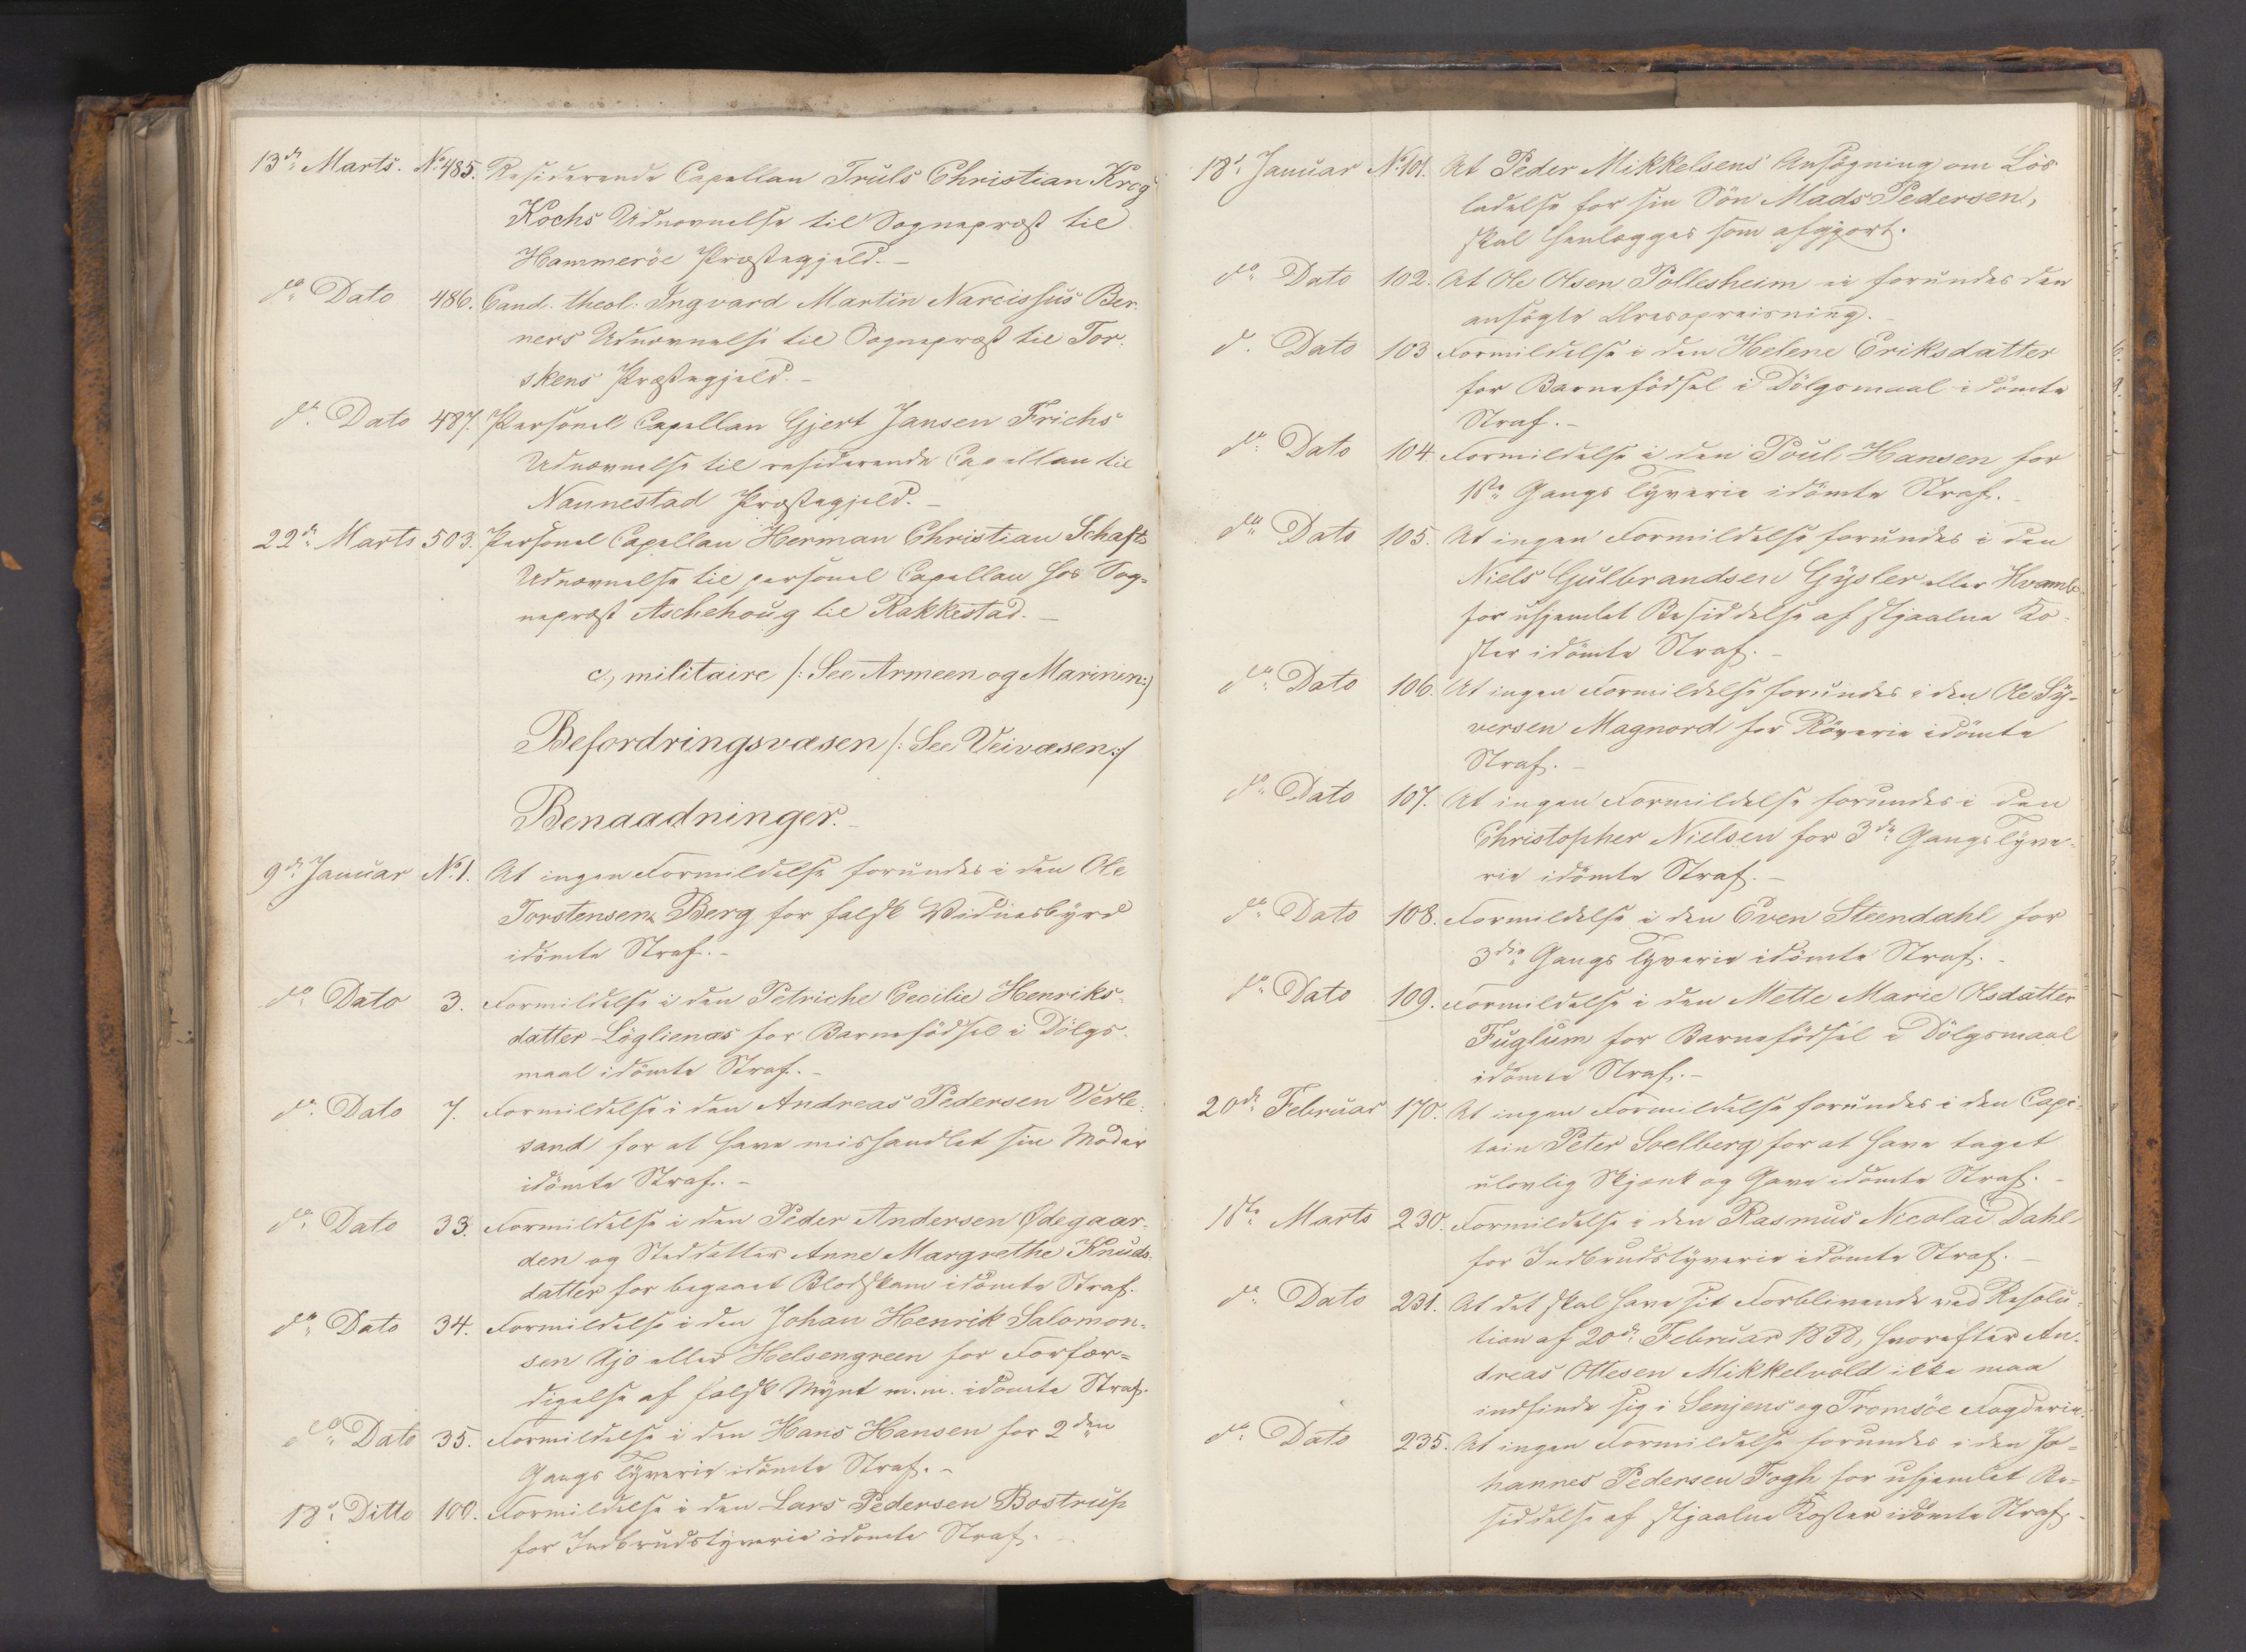 13de Marts. No 485. Residerende Capellan Truls Christian Krog
Kochs Udnævnelse til Sognepræst til
Hammeröe Præstegjeld. –
do Dato 486. Cand. theol. Ingvard Martin Narcissus Ber-
ners Udnævnelse til Sognepræst til Tor-
skens Præstegjeld. –
do Dato 487. Personel Capellan Gjert Jansen Frichs
Udnævnelse til residerende Capellan til
Nannestad Præstegjeld. –
22de Marts 503. Personel Capellan Herman Christian Schafts
Udnævnelse til personel Capellan hos Sog-
nepræst Aschehoug til Rakkestad. –
c, militaire /: See Armeen og Marinen :/
Befordringsvæsen /: See Veivæsen :/
Benaadninger. –
9de Januar No 1. At ingen Formildelse forundes i den Ole
Torstensen Berg for falsk Vidnesbyrd
idömte Straf. –
do Dato 3. Formildelse i den Petriche Cecilie Henriks-
datter Löglienæs for Barnefödsel i Dölgs-
maal idömte Straf. –
do Dato 7. Formildelse i den Andreas Pedersen Verle-
sand for at have mishandlet sin Moder
idömte Straf. –
do Dato 33. Formildelse i den Peder Andersen Ödegaar-
den og Steddatter Anne Margrethe Knuds-
datter for begaaet Blodskam idömte Straf.
do Dato 34. Formildelse i den Johan Henrik Salomon-
sen Ajo eller Helsengreen for Forfær-
digelse af falsk Mynt m.m. idömte Straf.
do Dato 35. Formildelse i den Hans Hansen for 2den
Gangs Tyverie idömte Straf. –
18de Ditto 100. Formildelse i den Lars Pedersen Bostrup
for Indbrudstyverie idömte Straf. –
18de Januar No 101. At Peder Mikkelsens Ansögning om Lös-
ladelse for sin Sön Mads Pedersen,
skal henlægges som afgjort.
do Dato 102. At Ole Olsen Pollesheim ei forundes den
ansögte Æresopreisning. –
do Dato 103 Formildelse i den Helene Eriksdatter
for Barnefödsel i Dölgsmaal idömte
Straf. –
do Dato 104 Formildelse i den Poul Hansen for
1ste Gangs Tyverie idömte Straf. –
do Dato 105. At ingen Formildelse forundes i den
Niels Gulbrandsen Gysler eller Hvamb
for uhjemlet Besiddelse af stjaalne Ko-
ster idömte Straf. –
do Dato 106. At ingen Formildelse forundes i den Ole Sy-
versen Magnord for Röverie idömte
Straf. –
do Dato 107. At ingen Formildelse forundes i den
Christopher Nielsen for 3die Gangs Tyve-
rie idömte Straf. –
do Dato 108. Formildelse i den Even Steendahl for
3die Gangs Tyverie idömte Straf. –
do Dato 109. Formildelse i den Mette Marie Olsdatter
Fuglum for Barnefödsel i Dölgsmaal
idömte Straf. –
20de Februar 170. At ingen Formildelse forundes i den Capi-
tain Peter Soelberg for at have taget
ulovlig Skjenk og Gave idömte Straf. –
1ste Marts 230. Formildelse i den Rasmus Nicolai Dahl
for Indbrudstyverie idömte Straf. –
do Dato 231. At det skal have sit Forblivende ved Resolu-
tion af 20de Februar 1838, hvorefter An-
dreas Ottesen Mikkelvold ikke maa
indfinde sig i Senjens og Tromsöe Fogderie.
do Dato 235. At ingen Formildelse forundes i den Jo-
hannes Pedersen Fogh for uhjemlet Be-
siddelse af stjaalne Koster idömte Straf. –